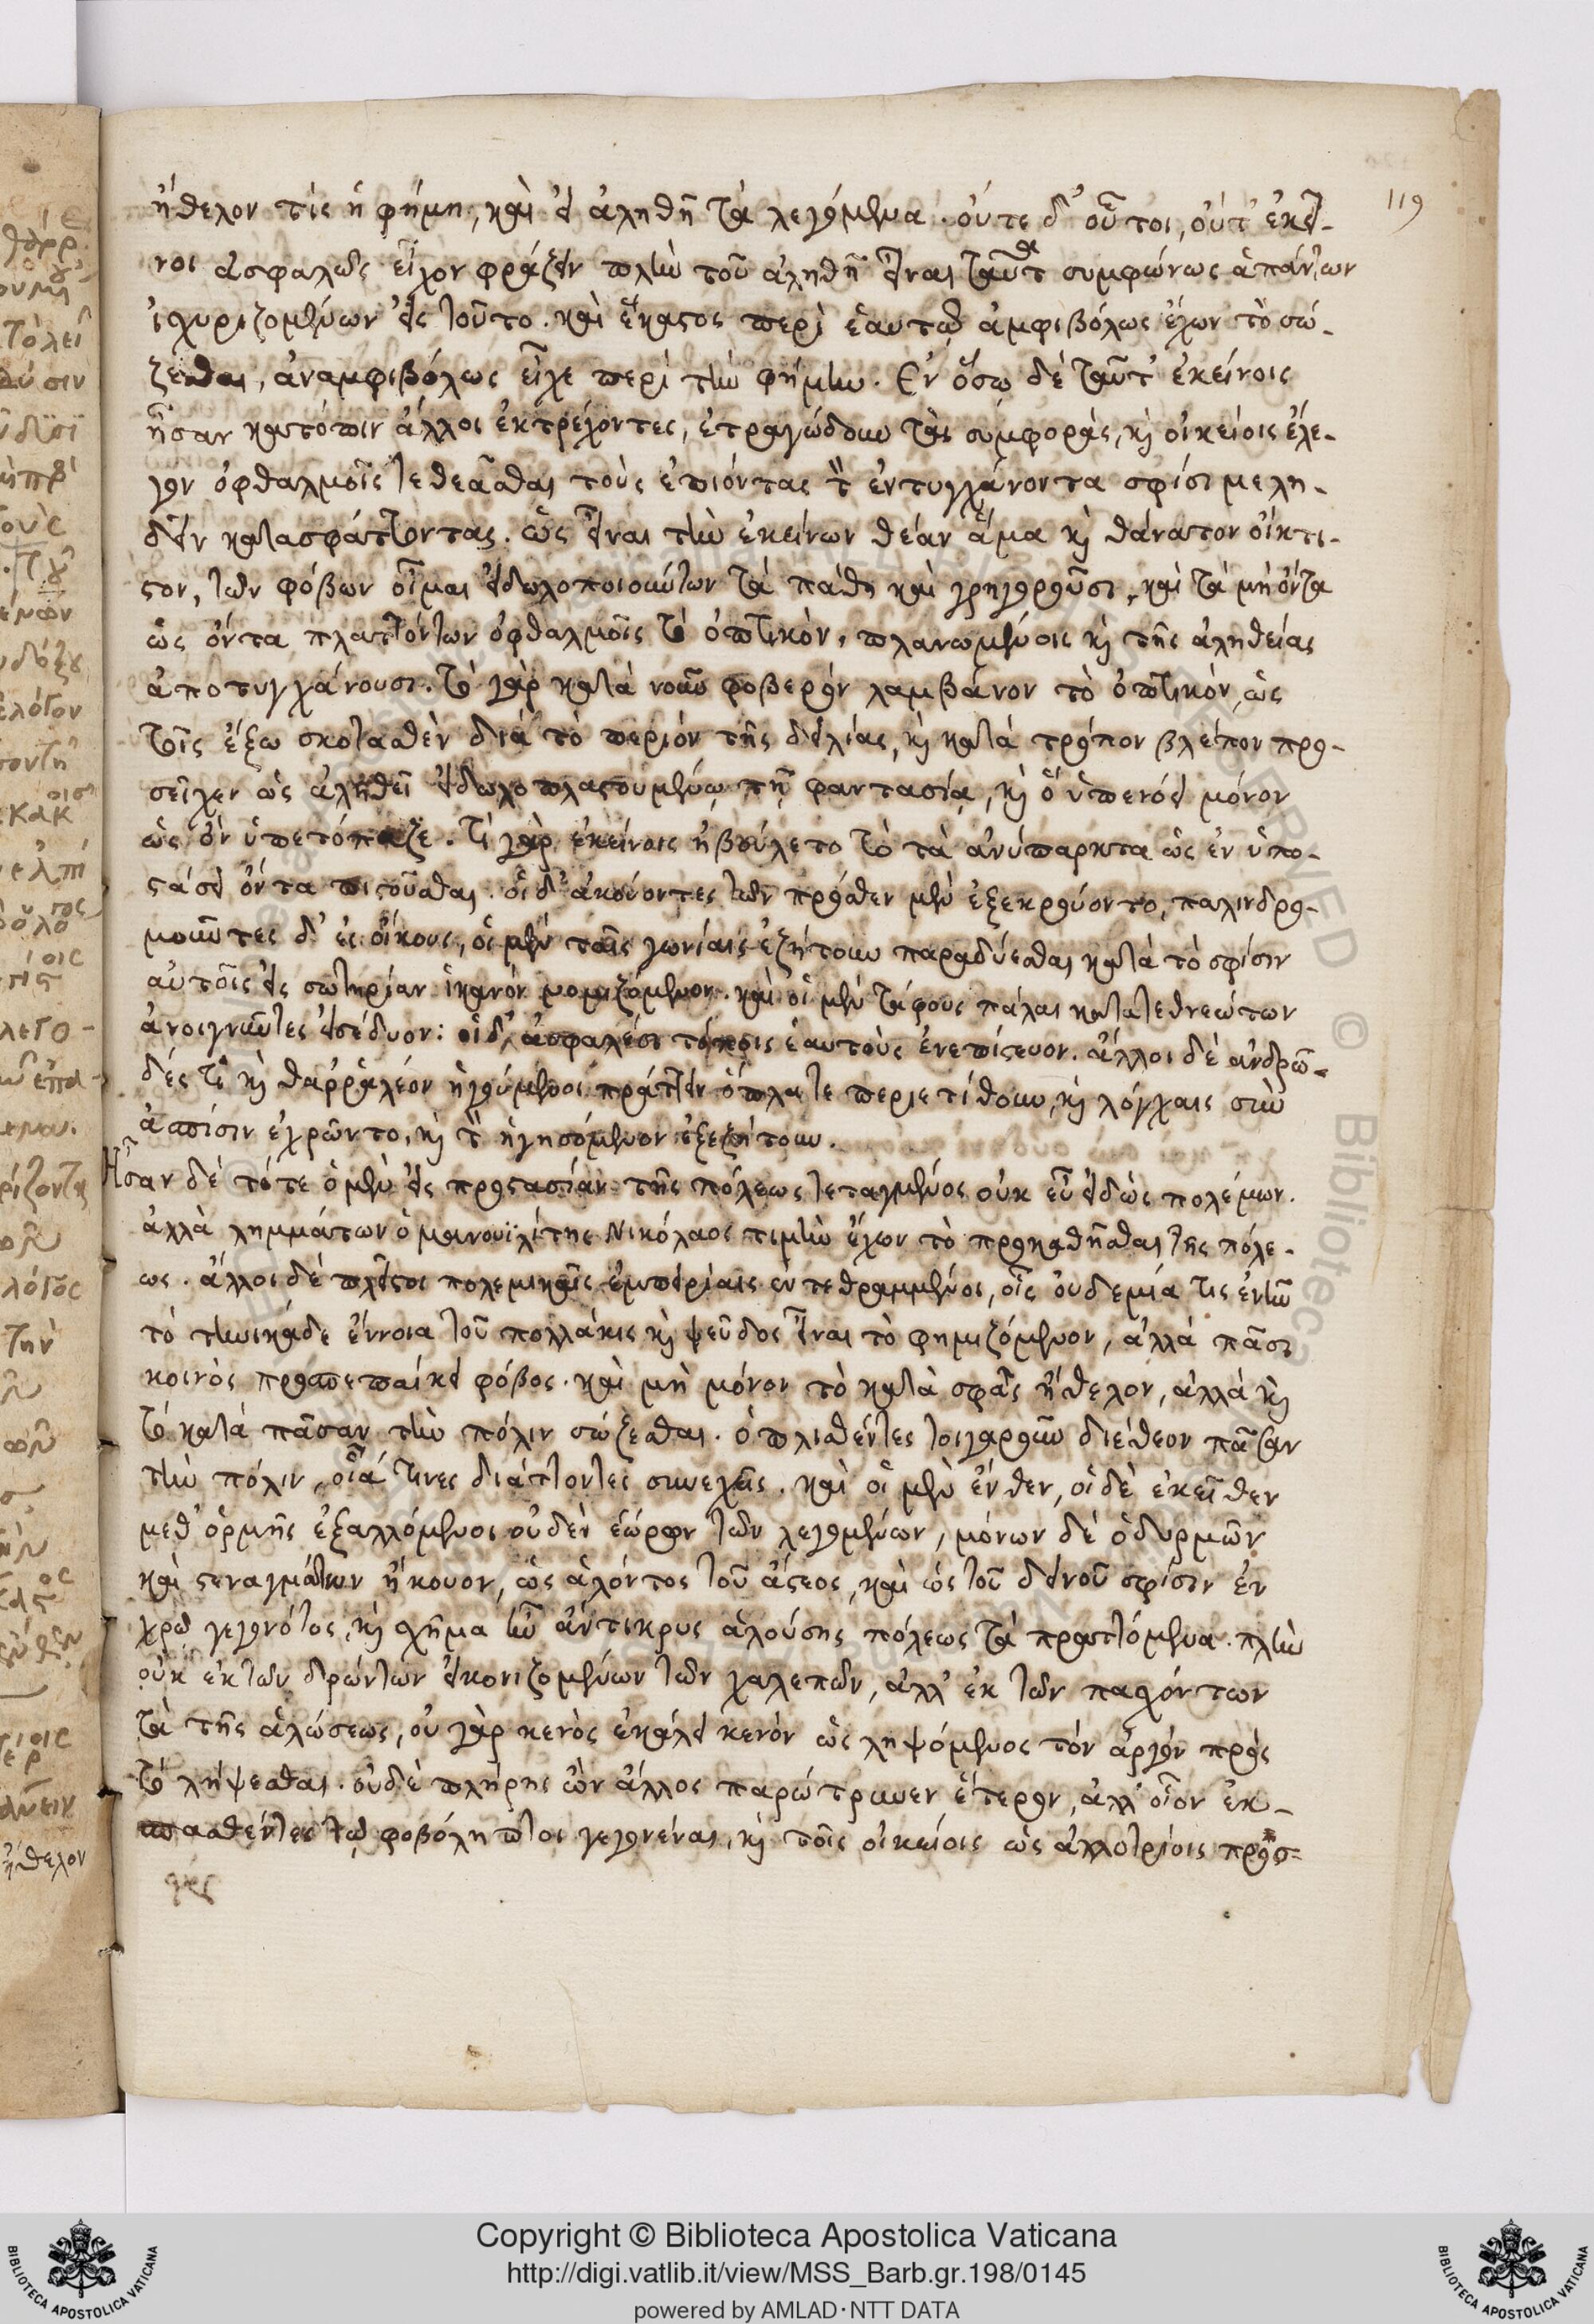 119
ἤθελον τίς ἡ φήμη, καὶ εἰ ἀληθῆ τὰ λεγόμενα. οὔτε δ' οὗτοι, οὔτ' ἐκεῖ-
νοι ἀσφαλῶς εἶχον φράζειν πλὴν τοῦ ἀληθῆ εἶναι ταῦτα συμφώνως ἁπάντων
ἰσχυριζομένων εἰς τοῦτο. καὶ ἕκαστος περὶ ἑαυτῷ ἀμφιβόλως ἔχων τὸ σώ-
ζεσθαι, ἀναμφιβόλως εἶχε περὶ τὴν φήμην. Ἐν ὅσῳ δὲ ταῦτ' ἐκείνοις
ἦσαν κατόπιν ἄλλοι ἐκτρέχοντες, ἐτραγώδουν τὰς συμφοράς, καὶ οἰκείοις ἔλε-
γον ὀφθαλμοῖς τεθεᾶσθαι τοὺς ἐπιόντας τὸν ἐντυγχάνοντα σφίσι μελη-
δὲν κατασφάττοντας. ὡς εἶναι τὴν ἐκείνων θέαν ἅμα καὶ θάνατον οἴκτι-
στον, τῶν φόβων οἶμαι εἰδωλοποιούντων τὰ πάθη καὶ γρηγοροῦσι, καὶ τὰ μὴ ὄντα
ὡς ὄντα πλαττόντων ὀφθαλμοῖς τὸ ὀπτικὸν, πλανωμένοις καὶ τῆς ἀληθείας
ἀποτυγχάνουσι. τὸ γὰρ κατὰ νοῦν φοβερὸν λαμβάνον τὸ ὀπτικὸν, ὡς
τοῖς ἔξω σκοτασθὲν διὰ τὸ περιὸν τῆς δειλίας, καὶ κατὰ τρόπον βλέπον προ-
σεῖχεν ὡς ἀληθεῖ εἰδωλοπλαστουμένῳ τῇ φαντασίᾳ, καὶ ὃ ὑπενόει μόνον
ὡς ὂν ὑπετόπαζε. Τί γὰρ ἐκείνοις ἠβούλετο τὸ τὰ ἀνύπαρκτα ὡς ἐν ὑπο-
στάσει ὄντα πιστοῦσθαι. οἱ δ' ἀκούοντες τῶν πρόσθεν μὲν ἐξεκρούοντο, παλινδρο-
μοῦντες δ' ἐς οἴκους, ὁς μὲν ταῖς γωνίαις ἐζήτουν παραδύεσθαι κατὰ τὸ σφίσιν
αὐτοῖς εἰς σωτηρίαν ἱκανὸν νομιζόμενον. καὶ οἱ μὲν τάφους πάλαι κατατεθνεώτων
ἀνοιγνῦντες εἰσέδυον: οἱ δ' ἀσφαλέσι τόποις ἑαυτοὺς ἐνεπίστευον. ἄλλοι δὲ ἀνδρῶ-
δές τι καὶ θαρραλέον ἡγούμενοι πράττειν ὅπλα τε περιετίθουν, καὶ λόγχαις σὺν
ἀσπίσιν ἐχρῶντο, καὶ τὸν ἡγησόμενον ἐξεζήτουν.
Ἦσαν δὲ τότε ὁ μὲν εἰς προστασίαν τῆς πόλεως τεταγμένος οὐκ εὖ εἰδὼς πολέμων.
ἀλλὰ λημμάτων ὁ μανουϊλίτης Νικόλαος τιμὴν ἔχων τὸ προκαθῆσθαι τῆς πόλε-
ως. ἄλλοι δὲ πλεῖστοι πολεμικαῖς ἐμπειρίαις ἐντεθραμμένοι, οἷς οὐδεμία τις ἐνῆν
τὸ τηνικάδε ἔννοια τοῦ πολλάκις καὶ ψεῦδος εἶναι τὸ φημιζόμενον, ἀλλὰ πᾶσι
κοινὸς προσπεπαίκει φόβος. καὶ μὴ μόνον τὸ κατὰ σφᾶς ἤθελον, ἀλλὰ καὶ
τὸ κατὰ πᾶσαν τὴν πόλιν σώζεσθαι. ὁπλισθέντες τοιγαροῦν διέθεον πᾶσαν
τὴν πόλιν, οἷά τινες διάττοντες συνεχεῖς. καὶ οἱ μὲν ἔνθεν, οἱ δὲ ἐκεῖθεν
μεθ' ὁρμῆς ἐξαλλόμενοι οὐδὲν ἑώρων τῶν λεγομένων, μόνων δὲ ὀδυρμῶν
καὶ στεναγμάτων ἤκουον, ὡς ἁλόντος τοῦ ἄστεος, καὶ ὡς τοῦ δεινοῦ σφίσιν ἐν
χρῷ γεγονότος, καὶ σχῆμα ἦν ἄντικρυς ἁλούσης πόλεως τὰ πραττόμενα. πλὴν
οὐκ ἐκ τῶν δρώντων εἰκονιζομένων τῶν χαλεπῶν, ἀλλ' ἐκ τῶν πασχόντων
τὰ τῆς ἁλώσεως, οὐ γὰρ κενὸς ἐκάλει κενὸν ὡς ληψόμενος τὸν ἀργὸν πρὸς
τὸ λήψεσθαι. οὐδὲ πλήρης ὢν ἄλλος παρώτρυνεν ἕτερον, ἀλλ' οἷον ἐκ-
σπασθέντες τῷ φοβόληπτοι γεγονέναι, καὶ τοῖς οἰκείοις ὡς ἀλλοτρίοις προσ-
Copyright © Biblioteca Apostolica Vaticana
http://digi.vatlib.it/view/MSS_Barb.gr.198/0145
powered by AMLAD·NTT DATA